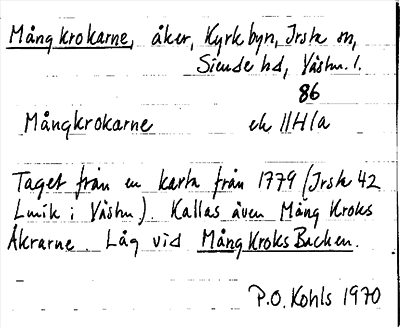 Mångkrokarne, åker, Kyrkbyn, Irsta sn,
Siende hd, Västm. l.
86
Mångkrokarne ek 11H1a
Taget från en karta från 1779 (Irsta 42
Lmik i Västm). Kallas även Mång Kroks
Åkrarne. Låg vid Mång Kroks Backen.
P.O. Kohls 1970